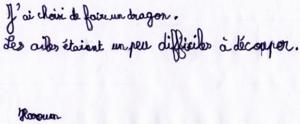 J'ai choisi de faire un dragon.
Les ailes étaient un peu difficiles à découper.
Haroun